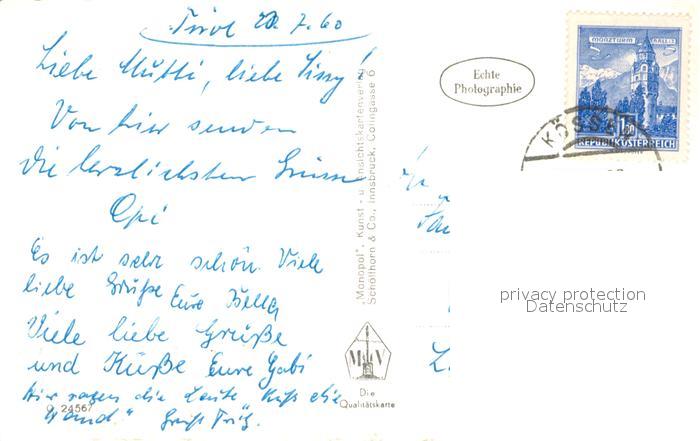 Tirol 7.60
Liebe Mutti, liebe Sissy!
Von hier senden
die herzlichsten Grüsse
Opi
Es ist sehr schön. Viele
liebe Grüße Eure Bella
Viele liebe Grüße
und Küße Eure Gabi
Hir sagen die Leute "Küß die
Hand". Gruß Fritz.
O 24567
"Monopol", Kunst- u. Ansichtskartenverlag
Schöllhorn & Co., Innsbruck, Colingasse 6
M V
Die
Qualitätskarte
Echte
Photographie
MÜNZTURM HALL i.T.
REPUBLIK ÖSTERREICH
KÖSSEN
privacy protection
Datenschutz